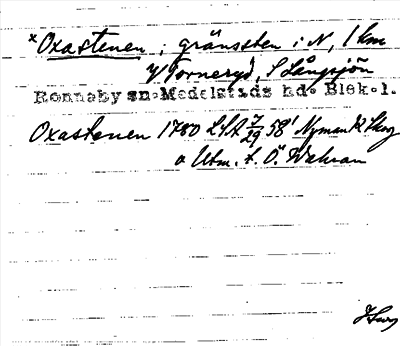 × Oxastenen ; gränssten i N, 1 km
V Torneryd, S Långsjön
Ronneby sn. Medelstads hd. Blek. l.
Oxastenen 1780 LSA 7/29 58' Nyman R. Skog
o Utm. t. Ö. Wahran